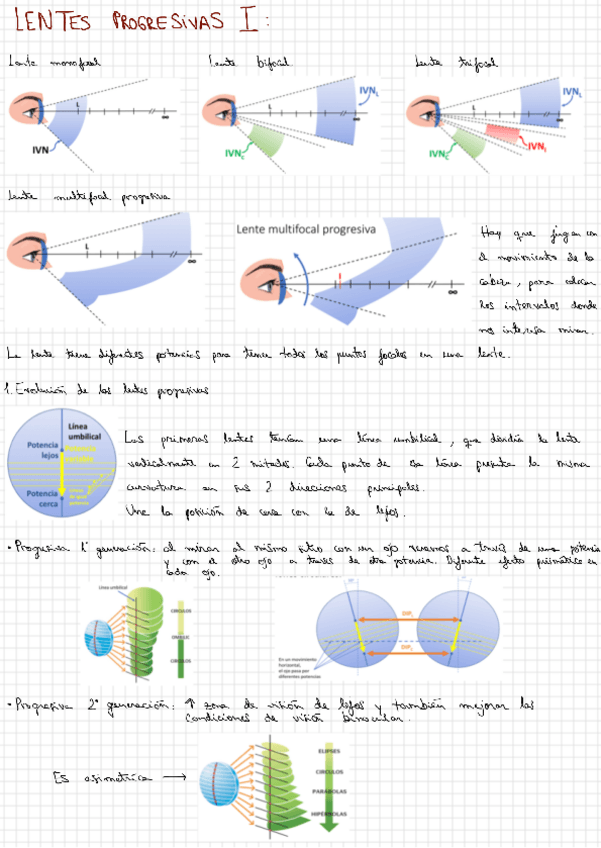 LENTES PROGRESIVAS I:
Lente monofocal
Lente bifocal
Lente trifocal
L
∞
IVN
L
∞
IVN_L
IVN_C
L
∞
IVN_L
IVN_I
IVN_C
Lente multifocal progresiva
L
∞
Lente multifocal progresiva
I
∞
Hay que jugar con
el movimiento de la
cabeza, para colocar
los intervalos donde
nos interesa mirar.
La lente tiene diferentes potencias para tener todos los puntos focales en una lente.
1. Evolución de las lentes progresivas
Línea
umbilical
Potencia
lejos
Potencia
cerca
Las primeras lentes tenían una línea umbilical, que dividía la lente
verticalmente en 2 mitades. Cada punto de esa línea presenta la misma
curvatura en sus 2 direcciones principales.
Une la posición de cerca con la de lejos.
• Progresiva 1ª generación: al mirar al mismo sitio con un ojo vemos a través de una potencia
y con el otro ojo a través de otra potencia. Diferente efecto prismático en
cada ojo.
Línea umbilical
CÍRCULOS
CÍRCULOS
DIP
DIP
En un movimiento
horizontal,
el ojo pasa por
diferentes potencias
• Progresiva 2ª generación: ↑ zona de visión de lejos y también mejorar las
condiciones de visión binocular.
Es asimétrica →
ELIPSES
CÍRCULOS
PARÁBOLAS
HIPÉRBOLAS